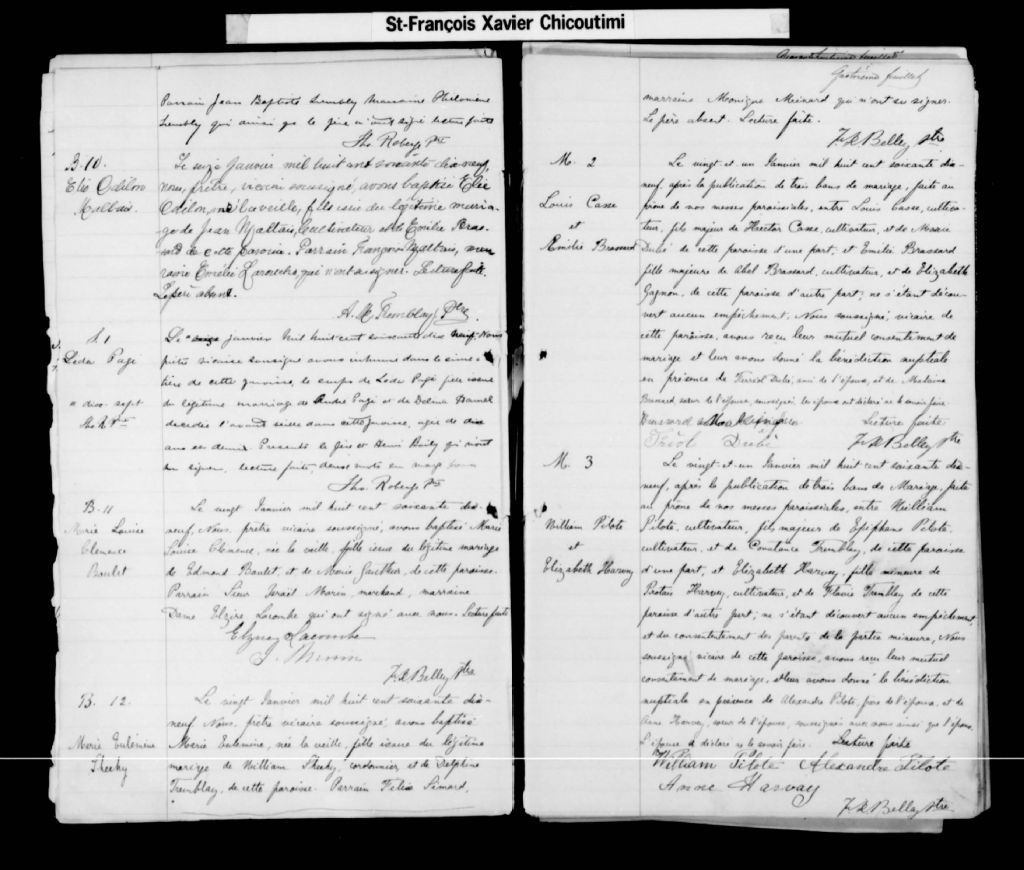 St-François Xavier Chicoutimi
Parrain Jean Baptiste Trembly Marraine Philomène
Trembly qui ainsi que le père n'ont signé lecture faite
Ths Roberge Ptre
B-10.
Elie Odilon
Maltais.
Le seize Janvier mil huit cent soixante dix-neuf,
nous, prêtre, vicaire soussigné, avons baptisé Elie
Odilon, né la veille, fils issu du légitime maria-
ge de Jean Maltais, Cultivateur et de Emilie Bras-
sard de cette paroisse. Parrain François Maltais, mar-
raine Emilie Larouche qui n'ont su signer. Lecture faite.
Le père absent.
A. M. Tremblay, Ptre
S. 1
Leda Pagé
" dix-sept
Ths R. Ptre
Le " janvier huit huit cent soixante dix neuf. Nous
prêtre vicaire soussigné avons inhumé dans le cime-
tière de cette paroisse, le corps de Leda Pagé fille issue
du légitime mariage de André Pagé et de Delima Hamel
décédée l'avant veille dans cette paroisse, agée de dix
ans et demi. Présents le père et Henri Baily qui n'ont
su signer, lecture faite deux mots en marge bons
Ths. Roberge Ptre
B-11
Marie Louise
Clémence
Boulet
Le vingt Janvier mil huit cent soixante dix-
neuf, Nous, prêtre vicaire soussigné, avons baptisé Marie
Louise Clémence, née la veille, fille issue du légitime mariage
de Edmond Boulet, et de Marie Gauthier, de cette paroisse.
Parrain Sieur Marin, marchand, marraine
Dame Elzire Lacombe qui ont signé avec nous. Lecture faite
Lacombe
J.
F. X Belley Ptre
B. 12.
Marie Eulermine
Sheehy
Le vingt Janvier mil huit cent soixante dix-
neuf Nous, prêtre vicaire soussigné, avons baptisé
Marie Eulermine, née la veille, fille issue du légitime
mariage de William Sheehy, cordonnier, et de Delphine
Tremblay, de cette paroisse. Parrain Félix Simard,
Quatorzième feuillet
marraine Monique Ménard qui n'ont su signer.
Le père absent. Lecture faite.
F. X Belley Ptre
M. 2
Louis Casse
et
Emilie Brassard
Le vingt et un Janvier mil huit cent soixante dix-
neuf, après la publication de trois bans de mariage, faite au
prône de nos messes paroissiales, entre Louis Casse, cultiva-
teur, fils majeur de Hector Casse, cultivateur, et de Marie
Dubé de cette paroisse d'une part; et Emilie Brassard
fille majeure de Abel Brassard, cultivateur, et de Elizabeth
Gagnon, de cette paroisse d'autre part; ne s'étant décou-
vert aucun empêchement, Nous soussigné, vicaire de
cette paroisse, avons reçu leur mutuel consentement de
mariage et leur avons donné la bénédiction nuptiale
en présence de Dubé, ami de l'époux, et de
Brassard sœur de l'épouse, soussignés, les époux ont déclaré ne le savoir faire.
Lecture faite
Dubé F. X Belley Ptre
M. 3
William Pilote
et
Elizabeth Harvey
Le vingt et un Janvier mil huit cent soixante dix-
neuf, après la publication de trois bans de Mariage, faite
au prône de nos messes paroissiales, entre William
Pilote, cultivateur, fils majeur de Epiphane Pilote,
cultivateur, et de Constance Tremblay, de cette paroisse
d'une part, et Elizabeth Harvey, fille mineure de
Protais Harvey, cultivateur, et de Flavie Tremblay de cette
paroisse d'autre part; ne s'étant découvert aucun empêchement,
et du consentement des parents de la partie mineure, Nous
soussigné, vicaire de cette paroisse, avons reçu leur mutuel
consentement de mariage, et leur avons donné la bénédiction
nuptiale en présence de Alexandre Pilote, frère de l'époux, et de
Anne Harvey, sœur de l'épouse, soussignés avec nous ainsi que l'époux.
L'épouse a déclaré ne le savoir faire. Lecture faite
William Pilote Alexandre Pilote
Anne Harvay
F. X Belley Ptre